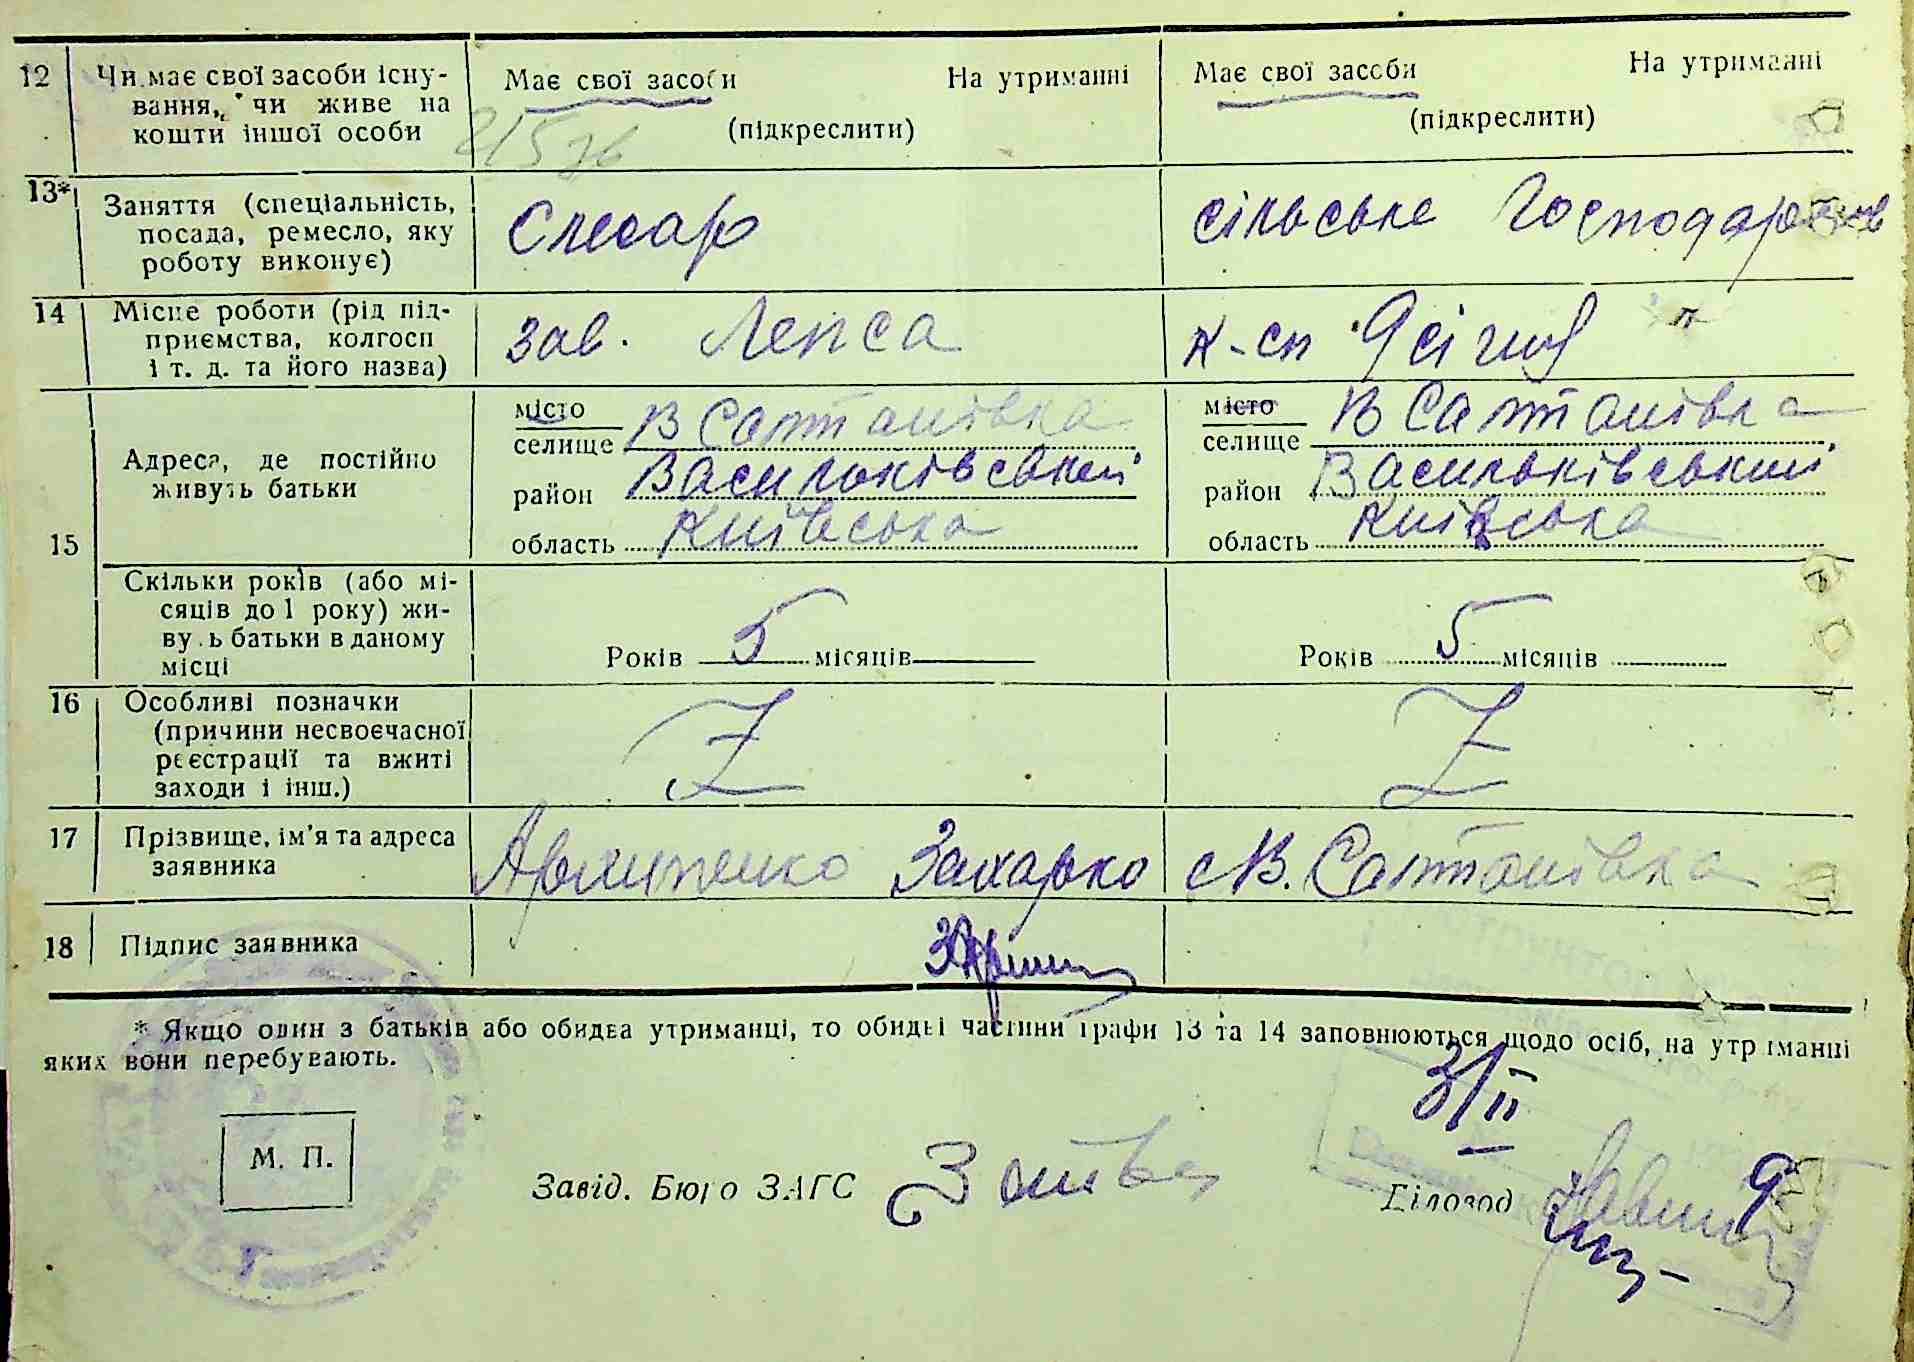 12 Чи має свої засоби існу-
вання, чи живе на
кошти іншої особи
Має свої засоби На утриманні
(підкреслити)
Має свої засоби На утриманні
(підкреслити)
13* Заняття (спеціальність,
посада, ремесло, яку
роботу виконує)
Слесар
сільське
14 Місце роботи (рід під-
приємства, колгосп
і т. д. та його назва)
зав. Лепса
к-сп
15
Адреса, де постійно
живуть батьки
місто
селище В Салтанівка
район Васильківський
область Київська
місто
селище В Салтанівка
район Васильківський
область Київська
Скільки років (або мі-
сяців до 1 року) жи-
вуть батьки в даному
місці
Років 5 місяців
Років 5 місяців
16 Особливі позначки
(причини несвоєчасної
реєстрації та вжиті
заходи і інш.)
Z
Z
17 Прізвище, ім'я та адреса
заявника
Архипенко Захарко
с В. Салтанівка
18 Підпис заявника
* Якщо один з батьків або обидва утриманці, то обидві частини графи 13 та 14 заповнюються щодо осіб, на утриманні
яких вони перебувають.
3/II
М. П.
Завід. Бюро ЗАГС
Діловод